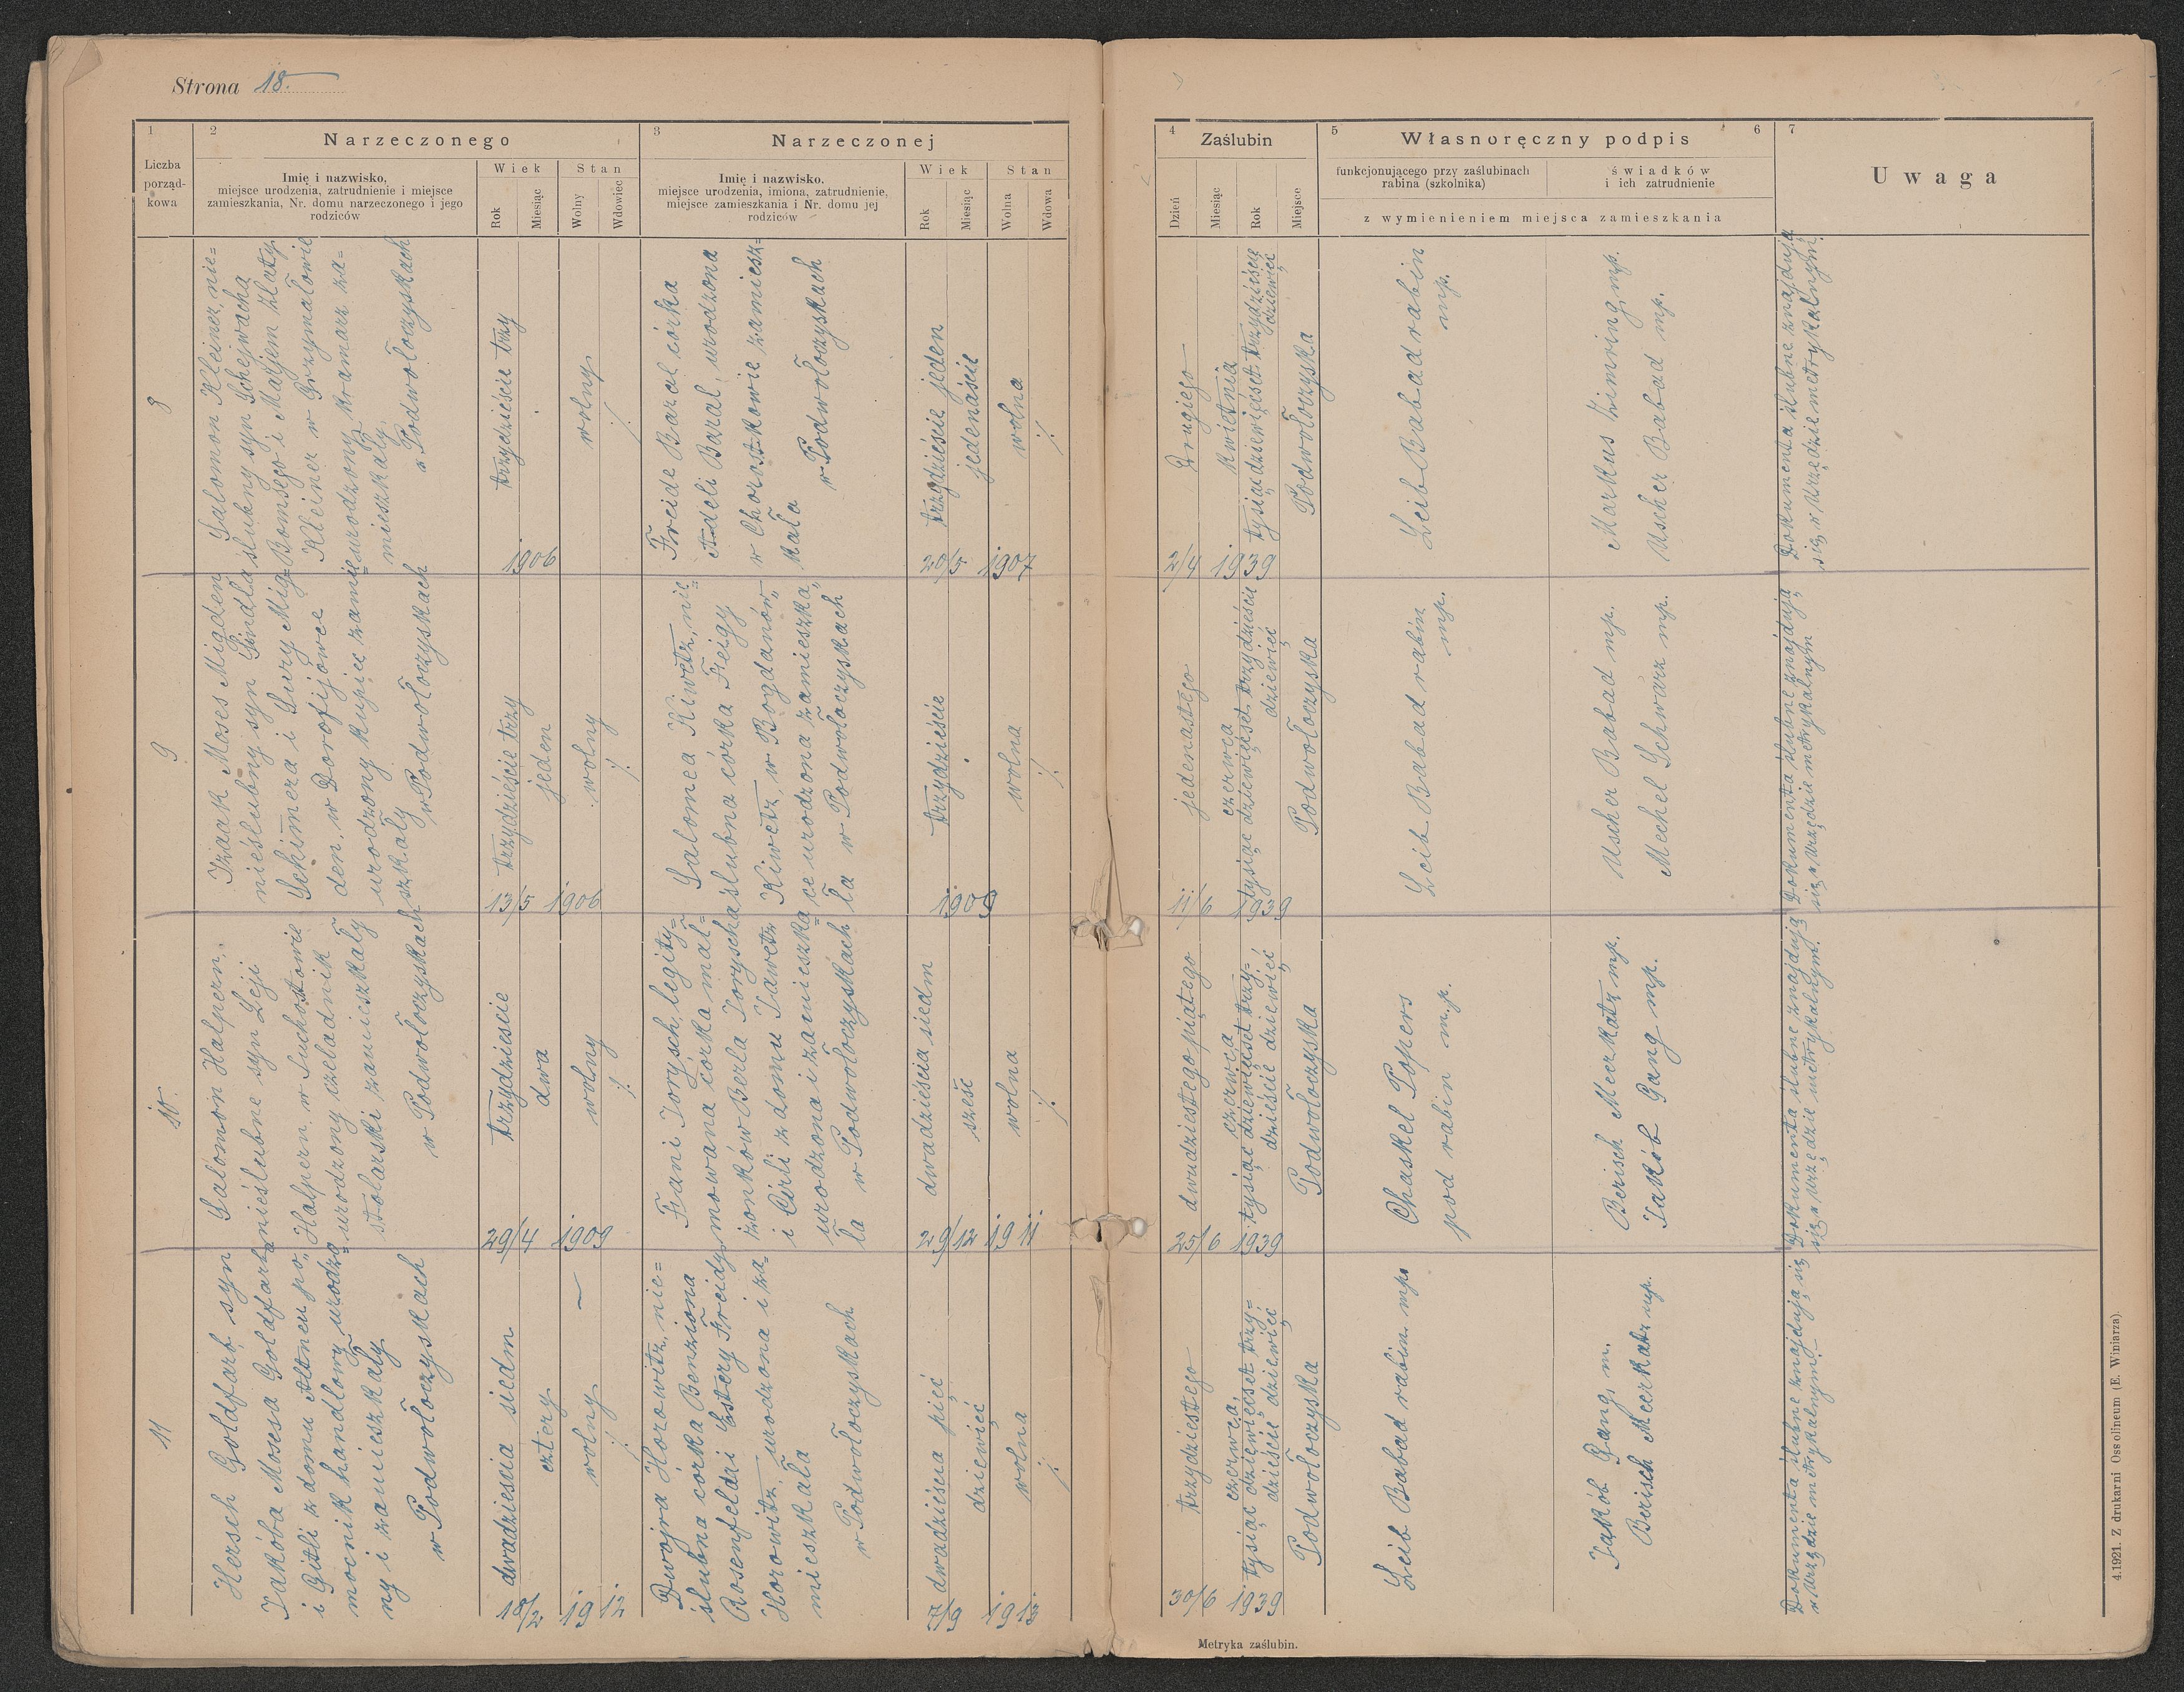 Strona 18.
1
Liczba
porząd-
kowa
2
Narzeczonego
Imię i nazwisko,
miejsce urodzenia, zatrudnienie i miejsce
zamieszkania, Nr. domu narzeczonego i jego
rodziców
Wiek
Rok
Miesiąc
Stan
Wolny
Wdowiec
3
Narzeczonej
Imię i nazwisko,
miejsce urodzenia, imiona, zatrudnienie,
miejsce zamieszkania i Nr. domu jej
rodziców
Wiek
Rok
Miesiąc
Stan
Wolna
Wdowa
4
Zaślubin
Dzień
Miesiąc
Rok
Miejsce
5
Własnoręczny podpis
6
funkcjonującego przy zaślubinach
rabina (szkolnika)
świadków
i ich zatrudnienie
z wymienieniem miejsca zamieszkania
7
Uwaga
8
Salomon Kleiner, nie=
ślubny syn Schejwacha
Bomsego i Matjem Zlaty
Kleiner w Grzymałowie
urodzony, kramarz za=
mieszkały
w Podwołoczyskach
trzydzieście trzy
1906
wolny
./.
Freide Bazal córka
Adeli Bazal, urodzona
w Chorostkowie zamiesz=
kała
w Podwołoczyskach
trzydzieście jeden
jedenaście
20/5 1907
wolna
./.
Drugiego
kwietnia
tysiąc dziewięćset trzydzieści
dziewięć
Podwołoczyska
2/4 1939
Leib Babad rabin
mp.
Markus Zimring mp.
Uscher Babad mp.
Dokumenta ślubne znajdują
się w urzędzie metrykalnym.
9
Izaak Moses Migden
nieślubny syn Pindla
Schimera i Sury Mig=
den, w Dorofijówce
urodzony kupiec zamie=
szkały
w Podwołoczyskach
trzydzieście trzy
jeden
13/5 1906
wolny
./.
Salomea Kiwetz, nie=
ślubna córka Freigy
Kiwetz, w Bogdanów=
ce urodzona zamieszka=
ła w Podwołoczyskach
trzydzieście
1909
wolna
./.
jedenastego
czerwca
tysiąc dziewięćset trzydzieści
dziewięć
Podwołoczyska
11/6 1939
Leib Babad rabin
mp.
Uscher Babad mp.
Mechel Schwarz mp.
Dokumenta ślubne znajdują
się w urzędzie metrykalnym
10.
Salomon Halpern,
nieślubne syn Leji
Halpern, w Suchostowie
urodzony czeladnik
stolarski zamieszkały
w Podwołoczyskach
trzydzieście
dwa
29/4 1909
wolny
./.
Frani Jorysch, legity=
mowana córka mał=
żonków Berla Joryscha
i Cirli z domu Jawetz
urodzona i zamieszka=
ła
w Podwołoczyskach
dwadzieścia siedm
sześć
29/12 1911
wolna
./.
dwudziestego piątego
czerwca
tysiąc dziewięćset trzy=
dzieście dziewięć
Podwołoczyska
25/6 1939
Chaskel Popers
pod rabin mp.
Berisch Meerkatz mp.
Jakób Gang mp.
Dokumenta ślubne znajdują
się w urzędzie metrykalnym.
11
Hersch Goldfarb, syn
Jakóba Mosesa Goldfarb
i Gitli z domu Altneu po=
mocnik handlowy urodzo=
ny i zamieszkały
w Podwołoczyskach
dwadzieścia siedm
cztery
1912
wolny
./.
Dwojra Horowitz, nie=
ślubna córka Benziona
Rosenfeldzi Estery Freidy
Horowitz, urodzona i za=
mieszkała
w Podwołoczyskach
dwadzieścia pięć
dziewięć
1913
wolna
./.
trzydziestego
czerwca
tysiąc dziewięćset trzy=
dzieście dziewięć
Podwołoczyska
30/6 1939
Leib Babad rabin mp.
Jakób Gang m.
Berisch Meerkatz mp.
Dokumenta ślubne znajdują się
w urzędzie metrykalnym.
Metryka zaślubin.
4.1921. Z drukarni Ossolineum (E. Winiarza).